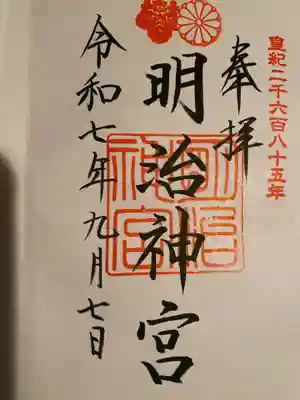 皇紀二千六百八十五年
奉拝
明治神宮
明治神宮
令和七年九月七日